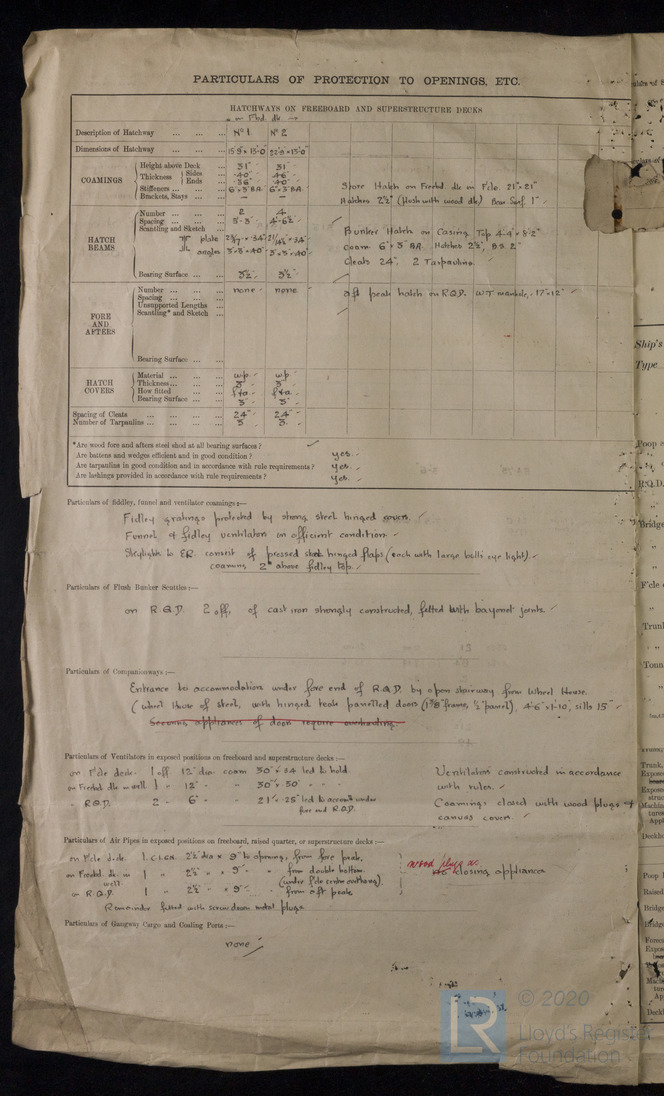 PARTICULARS OF PROTECTION TO OPENINGS, ETC.
HATCHWAYS ON FREEBOARD AND SUPERSTRUCTURE DECKS
Description of Hatchway ... ... ... Nº 1 Nº 2
Dimensions of Hatchway ... ... ... 15'9" × 13'0" 22'9" × 13'0"
COAMINGS
Height above Deck ... 31" 31"
Thickness Sides ... .40" .46"
Ends ... .36" .40"
Stiffeners ... ... ... 6"×3" B.A. 6"×3" B.A.
Brackets, Stays ... ... – –
Store Hatch on Freebd. dk in F'cle. 21"×21"
Hatches 2½" (flush with wood dk) Bear. Surf. 1"
HATCH BEAMS
Number ... ... ... 2 4
Spacing ... ... ... 5'-3" 4'-6½"
Scantling and Sketch ...
plate
angles 3"×3"×.40" 3"×3"×.40"
Bearing Surface ... ... 3½" 3½"
Bunker Hatch on Casing Top 4'-4"×3'-2"
coam 6"×3" BA. Hatches 2½", B.S. 2"
Cleats 24", 2 Tarpaulins.
FORE AND AFTERS
Number ... ... ... none none
Spacing ... ... ...
Unsupported Lengths ...
Scantling* and Sketch ...
Bearing Surface ... ...
aft peak hatch on R.Q.D. W.T. manhole, 17"×12"
HATCH COVERS
Material ... ... ... wp wp
Thickness ... ... ... 3" 3"
How fitted ... ... f&a f&a
Bearing Surface ... ... 3" 3"
Spacing of Cleats ... ... ... ... 24" 24"
Number of Tarpaulins ... ... ... 3 3
*Are wood fore and afters steel shod at all bearing surfaces?
Are battens and wedges efficient and in good condition? yes.
Are tarpaulins in good condition and in accordance with rule requirements? yes.
Are lashings provided in accordance with rule requirements? yes.
Particulars of fiddley, funnel and ventilator coamings:—
Fidley gratings protected by strong steel hinged covers.
Funnel & fidley ventilators in efficient condition.
Skylights to ER. consist of pressed steel hinged flaps (each with large bulls eye light).
coaming 2" above fidley top.
Particulars of Flush Bunker Scuttles:—
on R.Q.D. 2 off, of cast iron strongly constructed, fitted with bayonet joints.
Particulars of Companionways:—
Entrance to accommodation under fore end of R.Q.D. by open stairway from Wheel House.
(Wheel House of steel, with hinged teak panelled doors (1⅞" frame, ½" panel). 4'-6"×1'-10", sills 15"
Securing appliances of door require overhauling.
Particulars of Ventilators in exposed positions on freeboard and superstructure decks:—
on F'cle deck. 1 off 12" dia. coam 30"×.34 led to hold.
on Freebd. dk in well 1 " 12" " 30"×.30" " " "
" R.Q.D. 2 " 6" " 21"×.25" led to accomn under
fore end R.Q.D.
Ventilators constructed in accordance
with rules.
Coamings closed with wood plugs &
canvas covers.
Particulars of Air Pipes in exposed positions on freeboard, raised quarter, or superstructure decks:—
on F'cle deck. 1 2½" dia × 9" to opening, from fore peak,
on Freebd. dk in well 1 " 2½" " × 9" " " from double bottom
(under F'cle centre
on R.Q.D. 1 " 2½" " × 9" " from aft peak
Remainder fitted with screw down metal plugs.
wood plugs as.
No closing appliances
Particulars of Gangway Cargo and Coaling Ports:—
none
Ship's
Type
Poop
R.Q.D.
Bridge
F'cle
Trunk
© 2020
Lloyd's Register
Foundation
LR